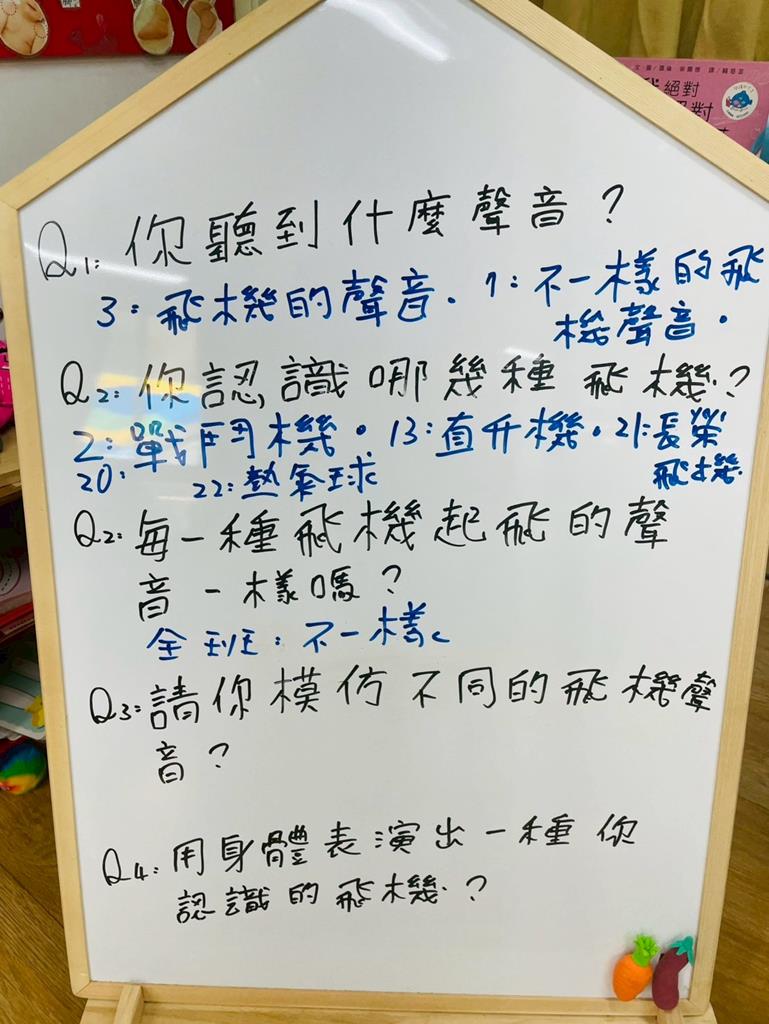 Q1: 你聽到什麼聲音？
3: 飛機的聲音. 7: 不一樣的飛
機聲音.
Q2: 你認識哪幾種飛機？
2: 戰鬥機。13: 直升機。21: 長榮
20:
22: 熱氣球
飛機
Q2: 每一種飛機起飛的聲
音一樣嗎？
全班: 不一樣
Q3: 請你模仿不同的飛機聲
音？
Q4: 用身體表演出一種你
認識的飛機？
絕對